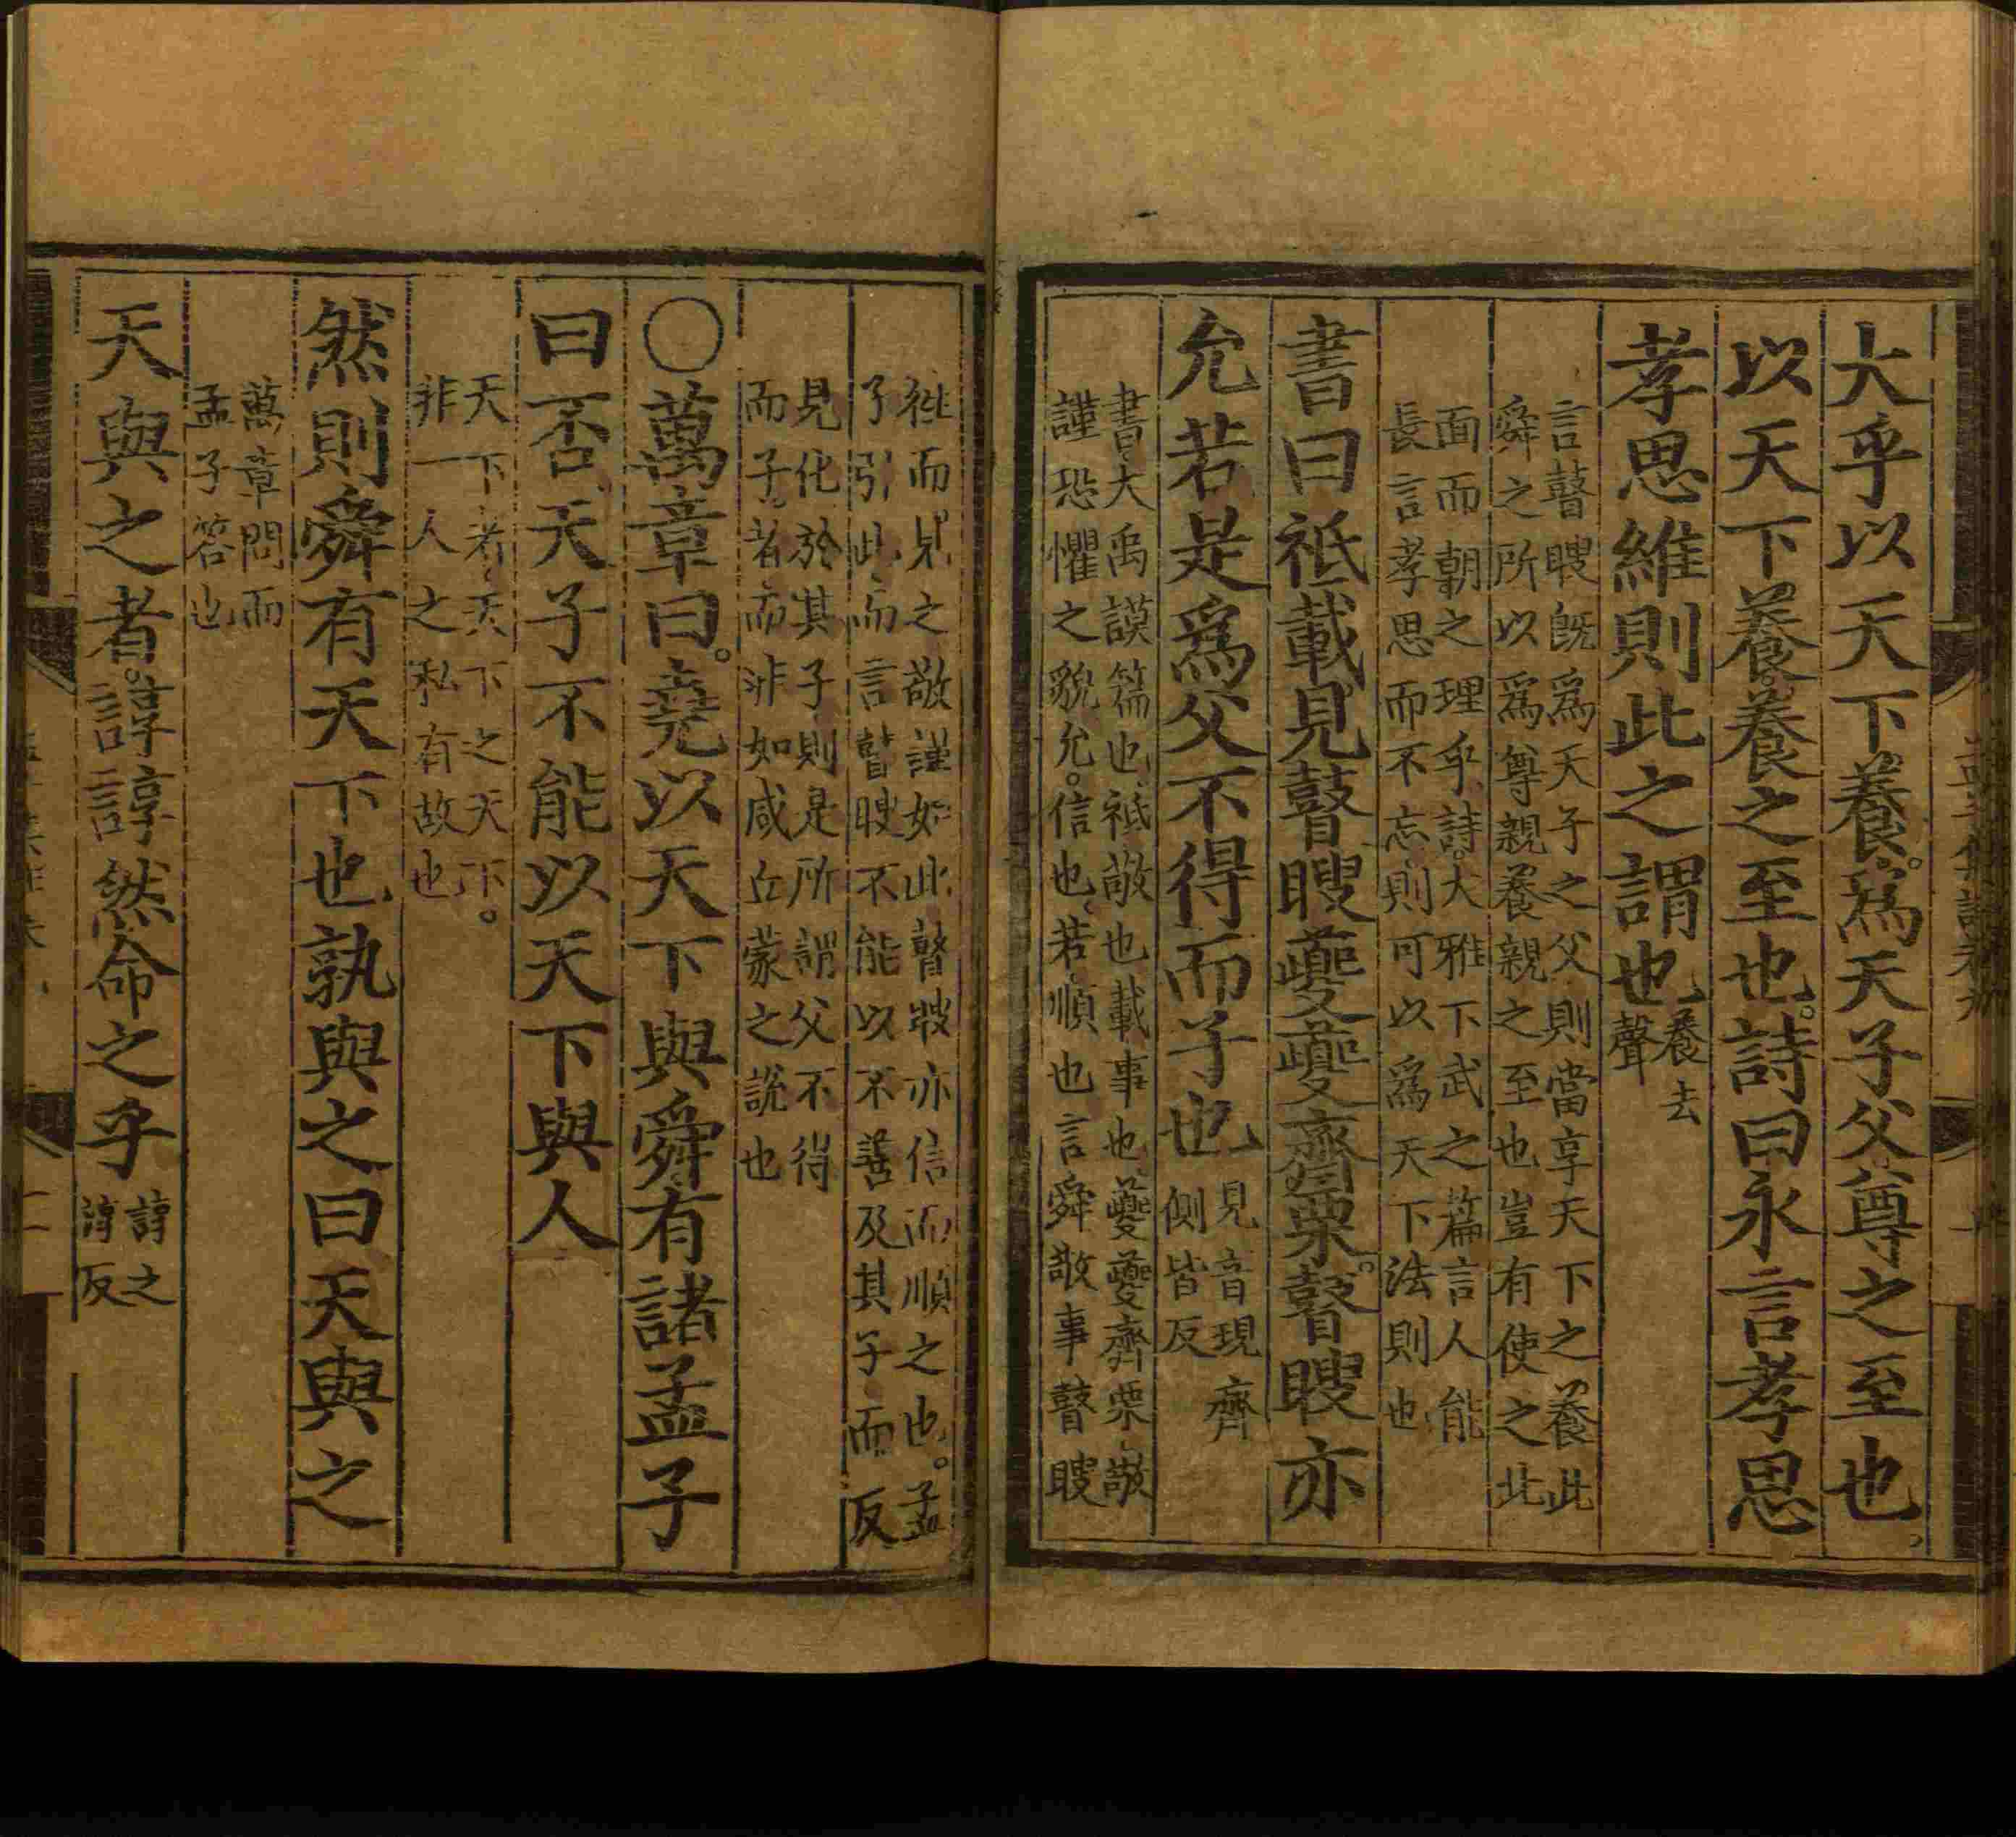 大乎以天下養爲天子父尊之至也
以天下養養之至也詩曰永言孝思
孝思維則此之謂也養去
聲
言瞽瞍既爲天子之父則當享天下之養此
舜之所以爲尊親養親之至也豈有使之北
面而朝之理乎詩大雅下武之篇言人能
長言孝思而不忘則可以爲天下法則也
書曰祗載見瞽瞍夔夔齊栗瞽瞍亦
允若是爲父不得而子也見音現齊
側皆反
書大禹謨篇也祗敬也載事也夔夔齊栗敬
謹恐懼之貌允信也若順也言舜敬事瞽瞍
徃而見之敬謹如此瞽瞍亦信而順之也孟
子引此而言瞽瞍不能以不善及其子而反
見化於其子則是所謂父不得
而子者而非如咸丘蒙之說也
○萬章曰堯以天下與舜有諸孟子
曰否天子不能以天下與人
天下者天下之天下
非一人之私有故也
然則舜有天下也孰與之曰天與之
萬章問而
孟子答也
天與之者諄諄然命之乎諄之
諄反